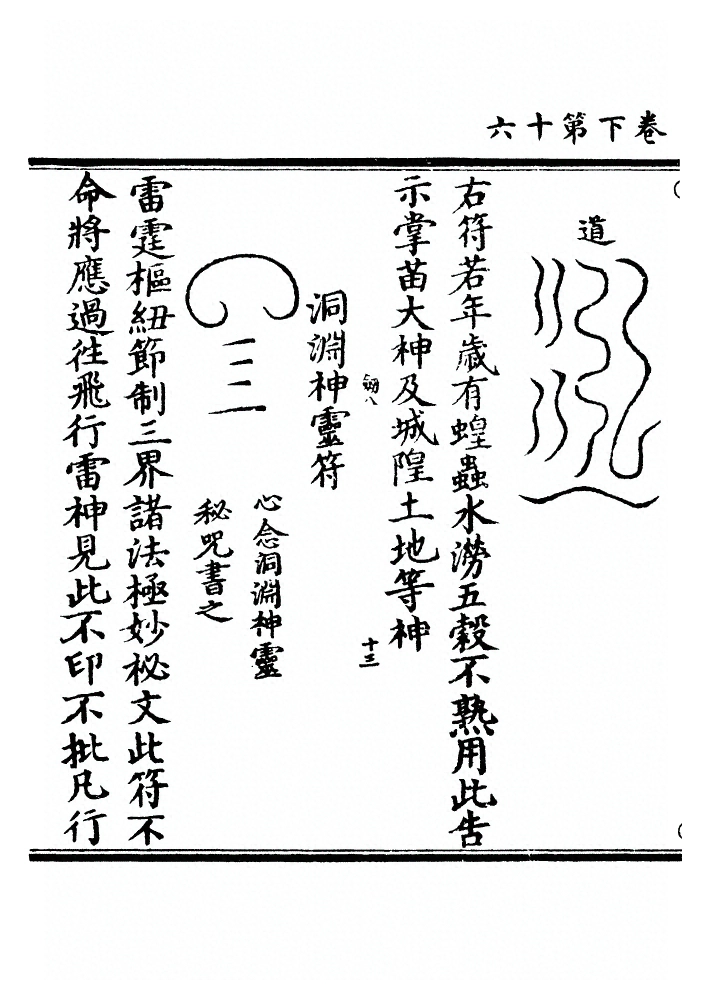 卷下第十六
道
右符若年歲有蝗蟲水澇五穀不熟用此告
示掌苗大神及城隍土地等神
十三
洞淵神靈符
心念洞淵神靈
秘咒書之
雷霆樞紐節制三界諸法極妙秘文此符不
命將應過往飛行雷神見此不印不批凡行